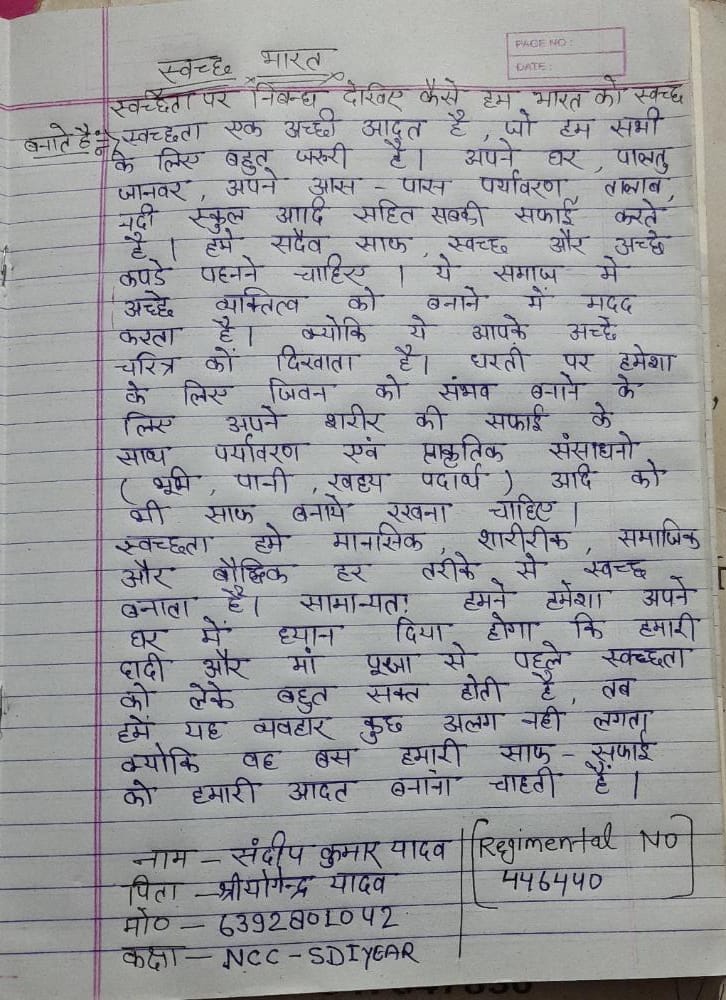 PAGE NO :
DATE :
स्वच्छ भारत
स्वच्छता पर निबन्ध देखिए कैसे हम भारत को स्वच्छ
बनाते है :-> स्वच्छता एक अच्छी आदत है , जो हम सभी
के लिए बहुत जरूरी है । अपने घर , पालतु
जानवर , अपने आस - पास पर्यावरण , तालाब ,
नदी स्कुल आदि सहित सबकी सफाई करते
है । हमे सदैव साफ , स्वच्छ और अच्छे
कपडे पहनने चाहिए । ये समाज मे
अच्छे व्यक्तित्व को बनाने में मदद
करता है । क्योकि ये आपके अच्छे
चरित्र कों दिखाता है । धरती पर हमेशा
के लिए जिवन को संभव बनाने के
लिए अपने शरीर की सफाई के
साथ पर्यावरण एवं प्राकृतिक संसाधनो
( भूमि , पानी , खद्दय पदार्थ ) आदि को
भी साफ बनाये रखना चाहिए ।
स्वच्छता हमे मानसिक , शारीरीक , समाजिक
और बौद्धिक हर तरीके से स्वच्छ
बनाता है । सामान्यतः हमने हमेशा अपने
घर में ध्यान दिया होगा कि हमारी
दादी और मां पूजा से पहले स्वच्छता
को लेके बहुत सक्त होती है , तब
हमें यह व्यवहार कुछ अलग नही लगता
क्योकि वह बस हमारी साफ - सफाई
को हमारी आदत बनाना चाहती हैं ।
नाम - संदीप कुमार यादव
पिता - श्रीयोगेन्द्र यादव
मो० - 6392801042
कक्षा - NCC - SDIYEAR
Regimental NO
446440